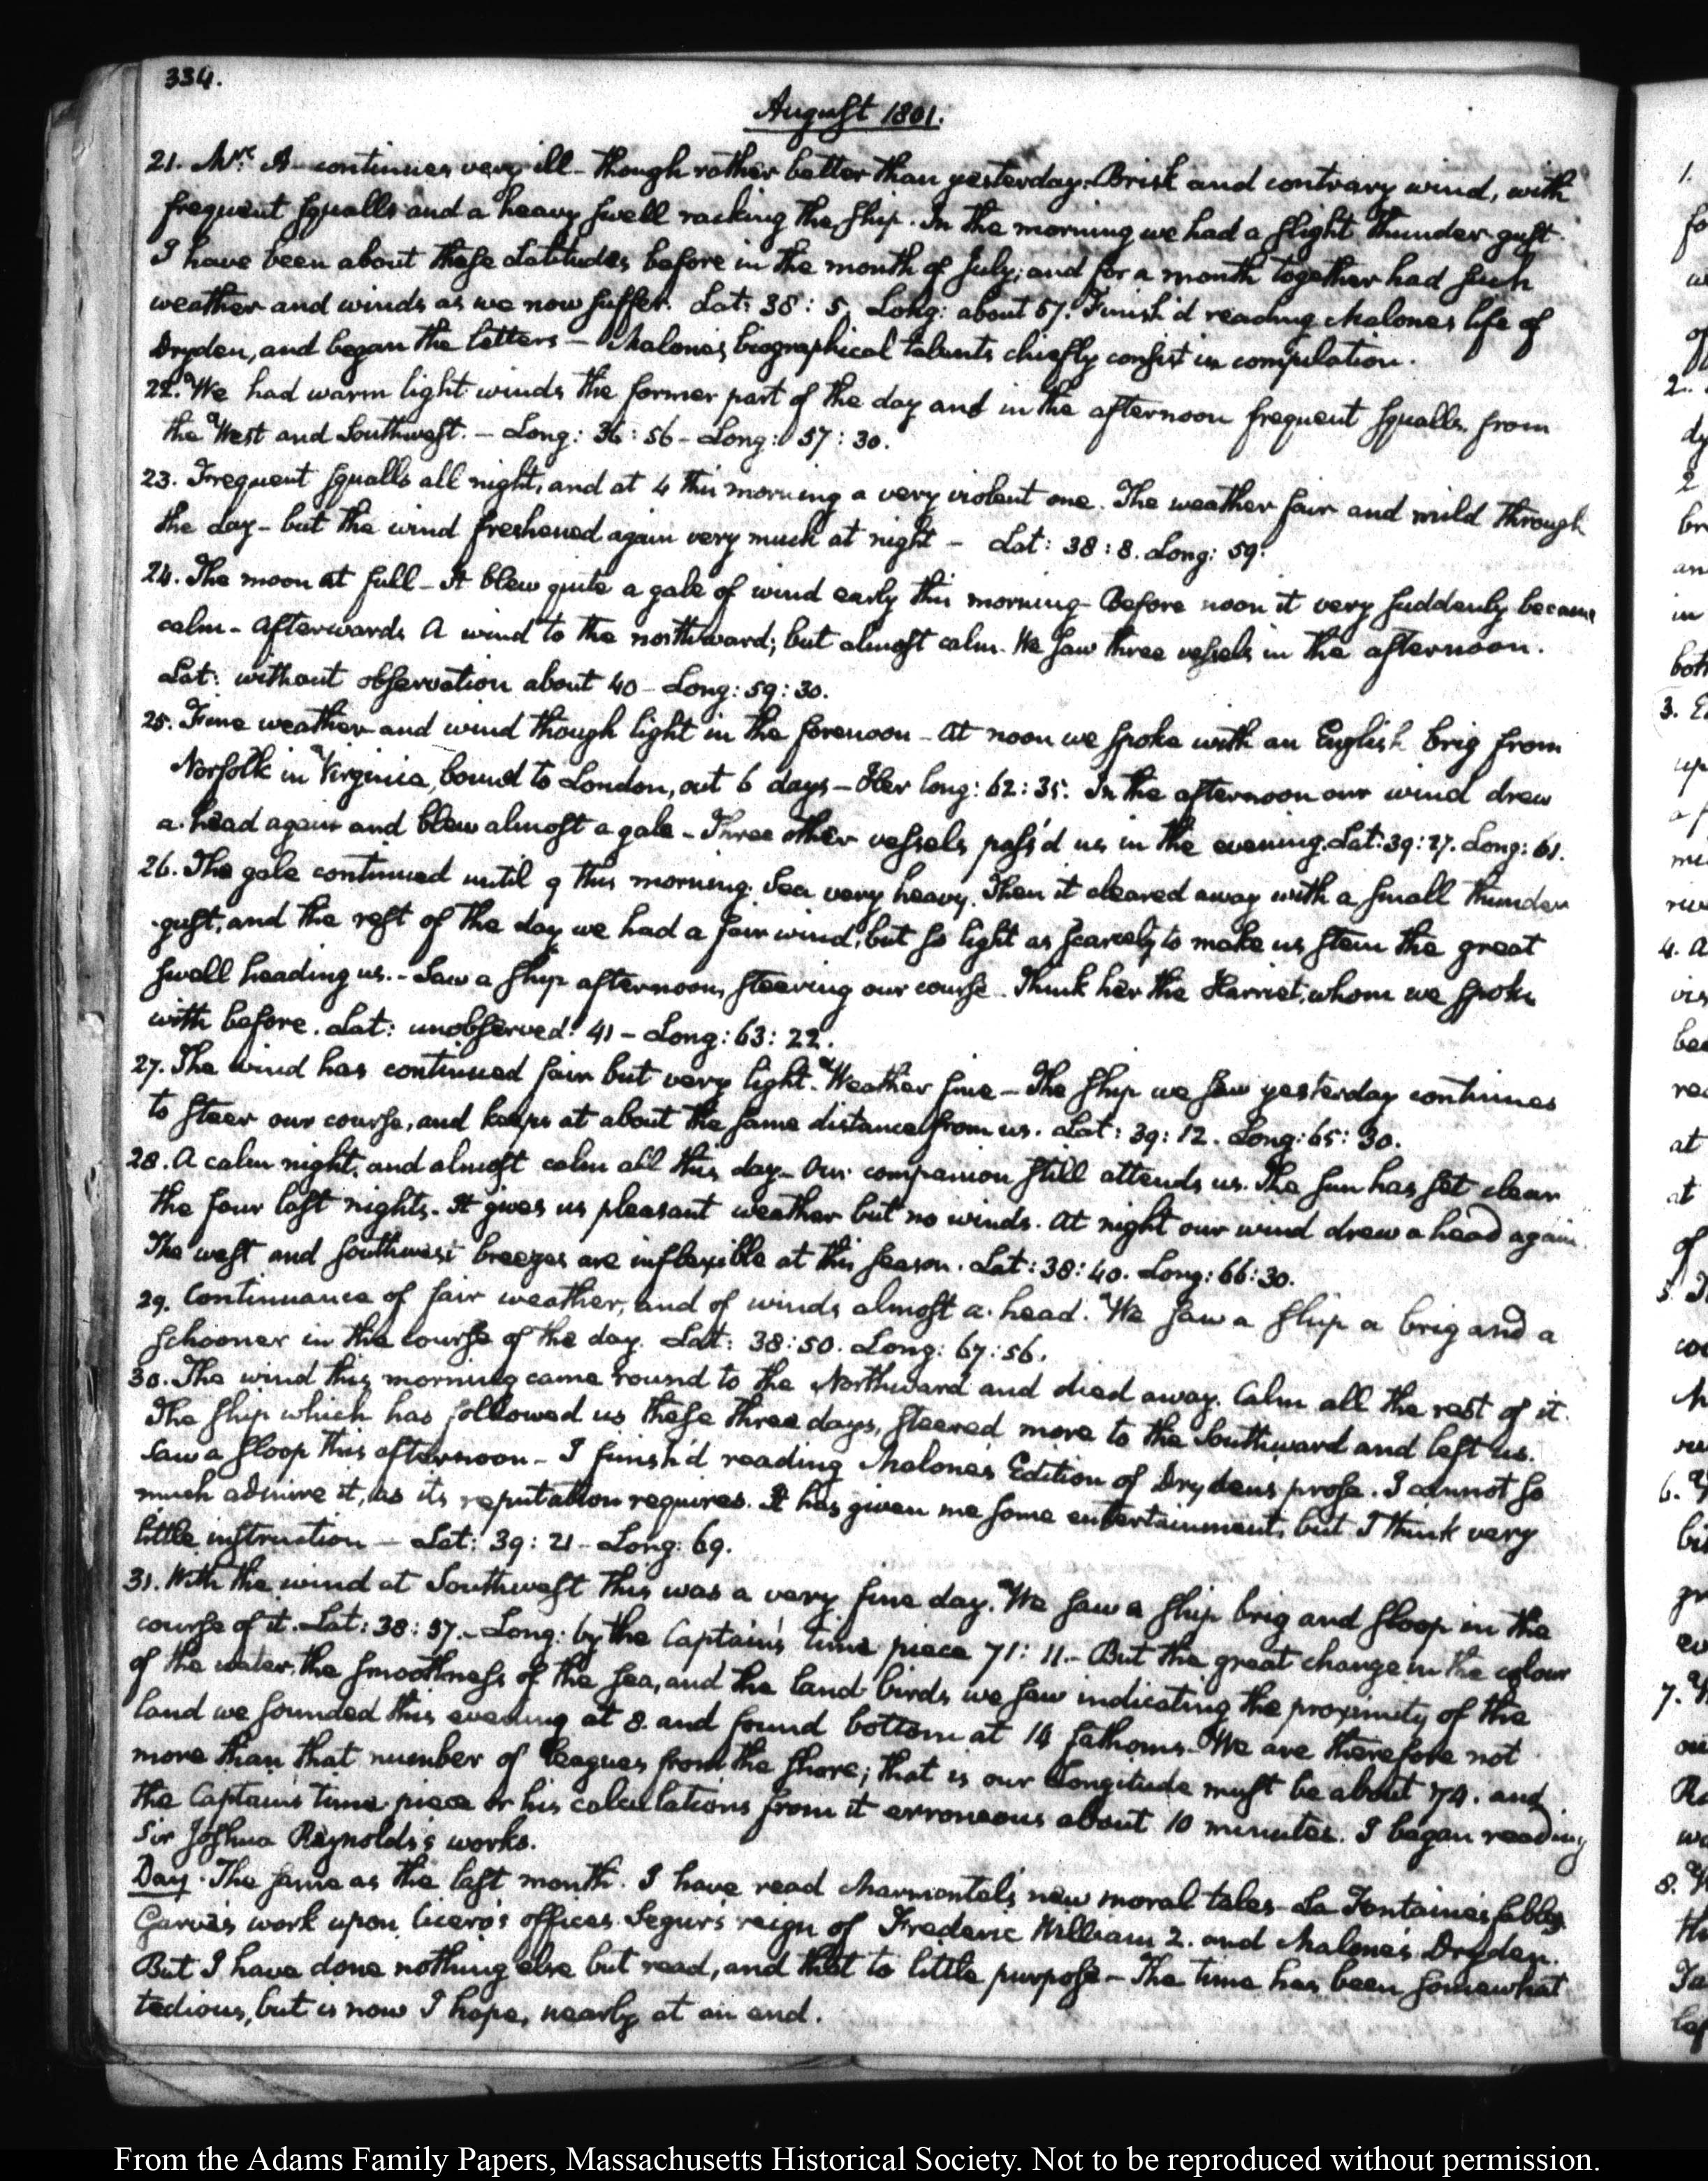 334.
August 1801.
21. Mrs. A continues very ill - though rather better than yesterday. Brisk and contrary wind, with
frequent squalls and a heavy swell racking the ship. In the morning we had a slight thunder gust.
I have been about these Latitudes before in the month of July; and for a month together had such
weather and winds as we now suffer. Lat: 38:5. Long: about 57. Finish'd reading Malone's life of
Dryden, and began the letters - Malone's biographical talents chiefly consist in compilation.
22. We had warm light winds the former part of the day and in the afternoon frequent squalls, from
the West and Southwest. - Long: 36:56 - Long: 57:30.
23. Frequent squalls all night, and at 4 this morning a very violent one. The weather fair and mild through
the day - but the wind freshened again very much at night - Lat: 38:8. Long: 59.
24. The moon at full - It blew quite a gale of wind early this morning - Before noon it very suddenly became
calm - Afterwards A wind to the northward; but almost calm. We saw three vessels in the afternoon.
Lat: without observation about 40 - Long: 59:30.
25. Fine weather and wind though light in the forenoon - At noon we spoke with an English brig from
Norfolk in Virginia, bound to London, out 6 days - Her long: 62:35. In the afternoon our wind drew
a-head again and blew almost a gale - Three other vessels pass'd us in the evening. Lat: 39:27. Long: 61.
26. The gale continued until 9 this morning. Sea very heavy. Then it cleared away with a small thunder
gust, and the rest of the day we had a fair wind, but so light as scarcely to make us stem the great
swell heading us. - Saw a ship afternoon, steering our course - Think her the Harriet, whom we spoke
with before. Lat: unobserved: 41 - Long: 63:22.
27. The wind has continued fair but very light. Weather fine - The ship we saw yesterday continues
to steer our course, and keeps at about the same distance from us. Lat: 39:12. Long: 65:30.
28. A calm night, and almost calm all this day - Our companion still attends us. The sun has set clear
the four last nights. It gives us pleasant weather but no winds. At night our wind drew a head again.
The west and southwest breezes are inflexible at this season. Lat: 38:40. Long: 66:30.
29. Continuance of fair weather, and of winds almost a-head. We saw a ship a brig and a
schooner in the course of the day. Lat: 38:50. Long: 67:56.
30. The wind this morning came round to the Northward and died away. Calm all the rest of it.
The ship which has followed us these three days, steered more to the Southward and left us.
Saw a sloop this afternoon - I finish'd reading Malone's Edition of Drydens prose. I cannot so
much admire it, as its reputation requires. It has given me some entertainment, but I think very
little instruction - Lat: 39:21 - Long: 69.
31. With the wind at Southwest this was a very fine day. We saw a ship brig and sloop in the
course of it. Lat: 38:57. - Long: by the Captain's time piece 71:11. - But the great change in the colour
of the water, the smoothness of the sea, and the land birds we saw indicating the proximity of the
land we sounded this evening at 8. and found bottom at 14 fathoms - We are therefore not
more than that number of leagues from the shore; that is our Longitude must be about 74. and
the Captain's time piece or his calculations from it erroneous about 10 minutes. I began reading
Sir Joshua Reynolds's works.
Day. The same as the last month. I have read Marmontel's new moral tales - La Fontaine's fables
Garve's work upon Cicero's offices. Segur's reign of Frederic William 2. and Malone's Dryden.
But I have done nothing else but read, and that to little purpose - The time has been somewhat
tedious, but is now I hope, nearly at an end.
From the Adams Family Papers, Massachusetts Historical Society. Not to be reproduced without permission.